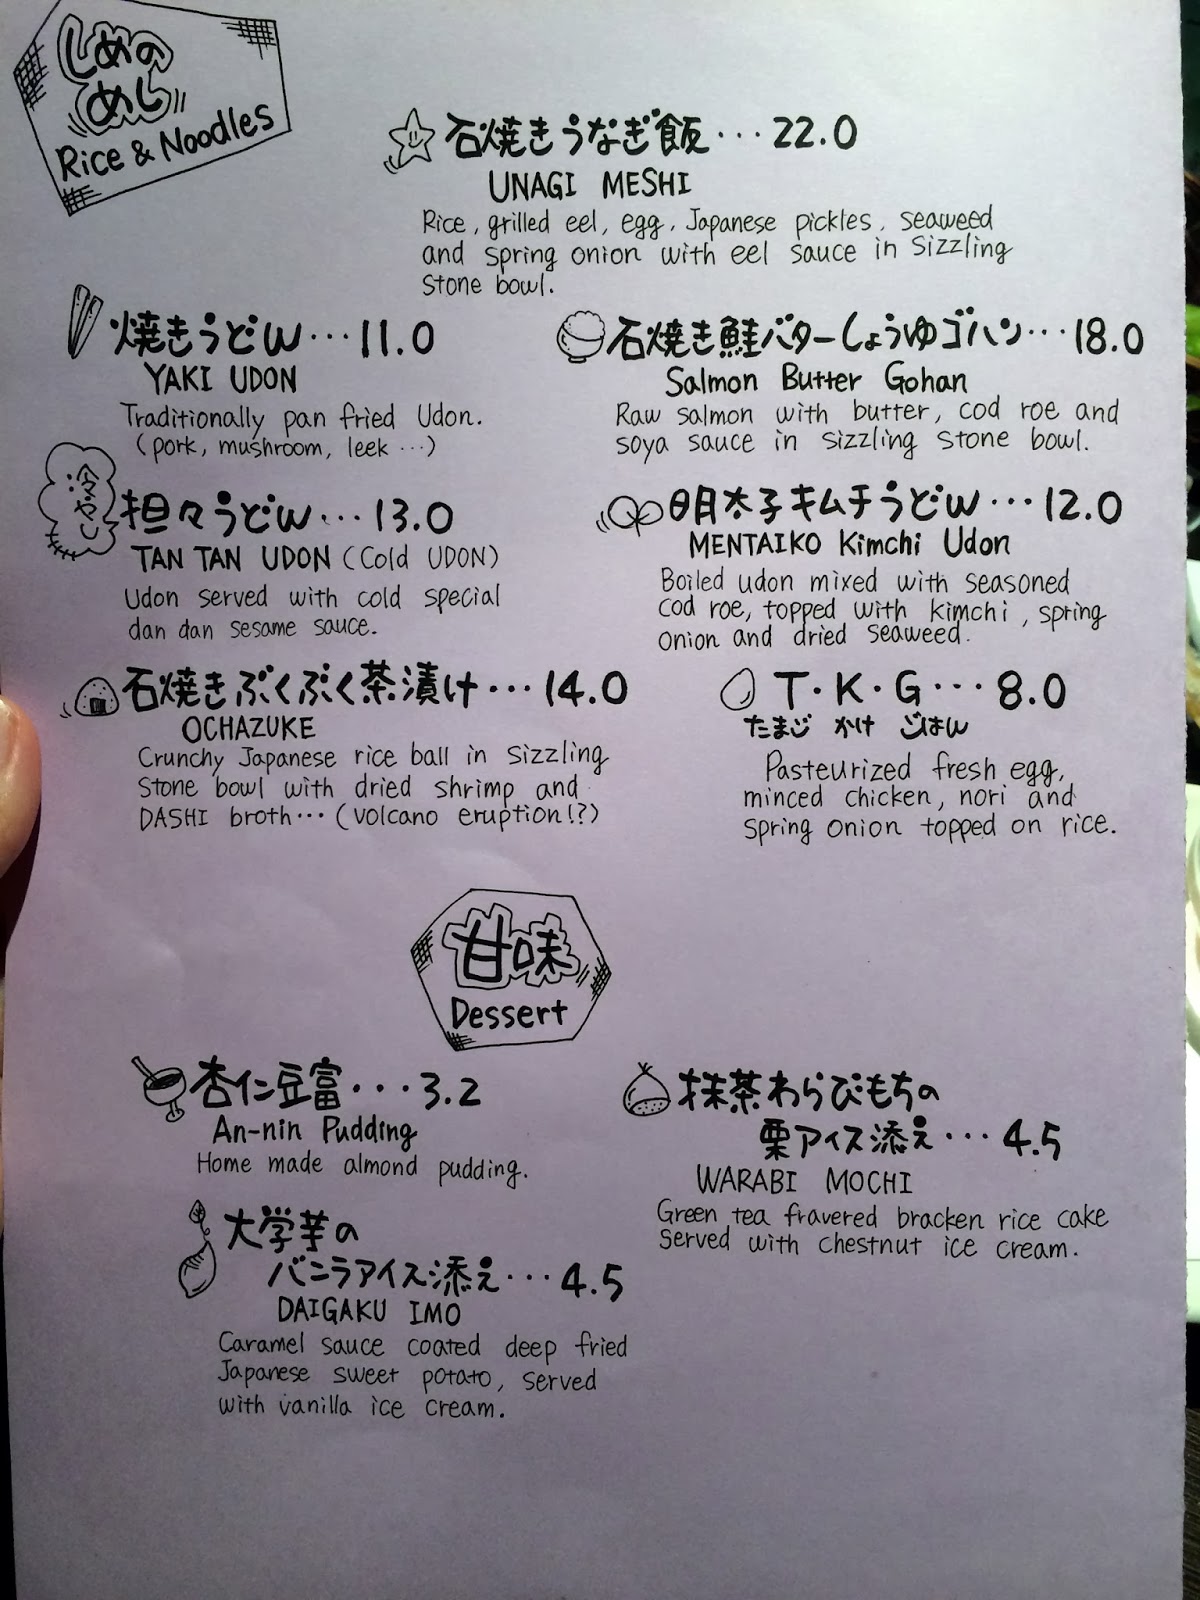 しめの
めし
Rice & Noodles
石焼きうなぎ飯・・・22.0
UNAGI MESHI
Rice, grilled eel, egg, Japanese pickles, seaweed
and spring onion with eel sauce in sizzling
stone bowl.
焼きうどん・・・11.0
YAKI UDON
Traditionally pan fried Udon.
(pork, mushroom, leek ・・・)
石焼き鮭バターしょうゆゴハン・・・18.0
Salmon Butter Gohan
Raw salmon with butter, cod roe and
soya sauce in sizzling stone bowl.
冷やし
担々うどん・・・13.0
TAN TAN UDON (Cold UDON)
Udon served with cold special
dan dan sesame sauce.
明太子キムチうどん・・・12.0
MENTAIKO Kimchi Udon
Boiled udon mixed with seasoned
cod roe, topped with kimchi, spring
onion and dried seaweed.
石焼きぶくぶく茶漬け・・・14.0
OCHAZUKE
Crunchy Japanese rice ball in sizzling
stone bowl with dried shrimp and
DASHI broth・・・(volcano eruption!?)
T・K・G・・・8.0
たまご かけ ごはん
Pasteurized fresh egg,
minced chicken, nori and
spring onion topped on rice.
甘味
Dessert
杏仁豆富・・・3.2
An-nin Pudding
Home made almond pudding.
抹茶わらびもちの
栗アイス添え・・・4.5
WARABI MOCHI
Green tea fravered bracken rice cake
served with chestnut ice cream.
大学芋の
バニラアイス添え・・・4.5
DAIGAKU IMO
Caramel sauce coated deep fried
Japanese sweet potato, served
with vanilla ice cream.